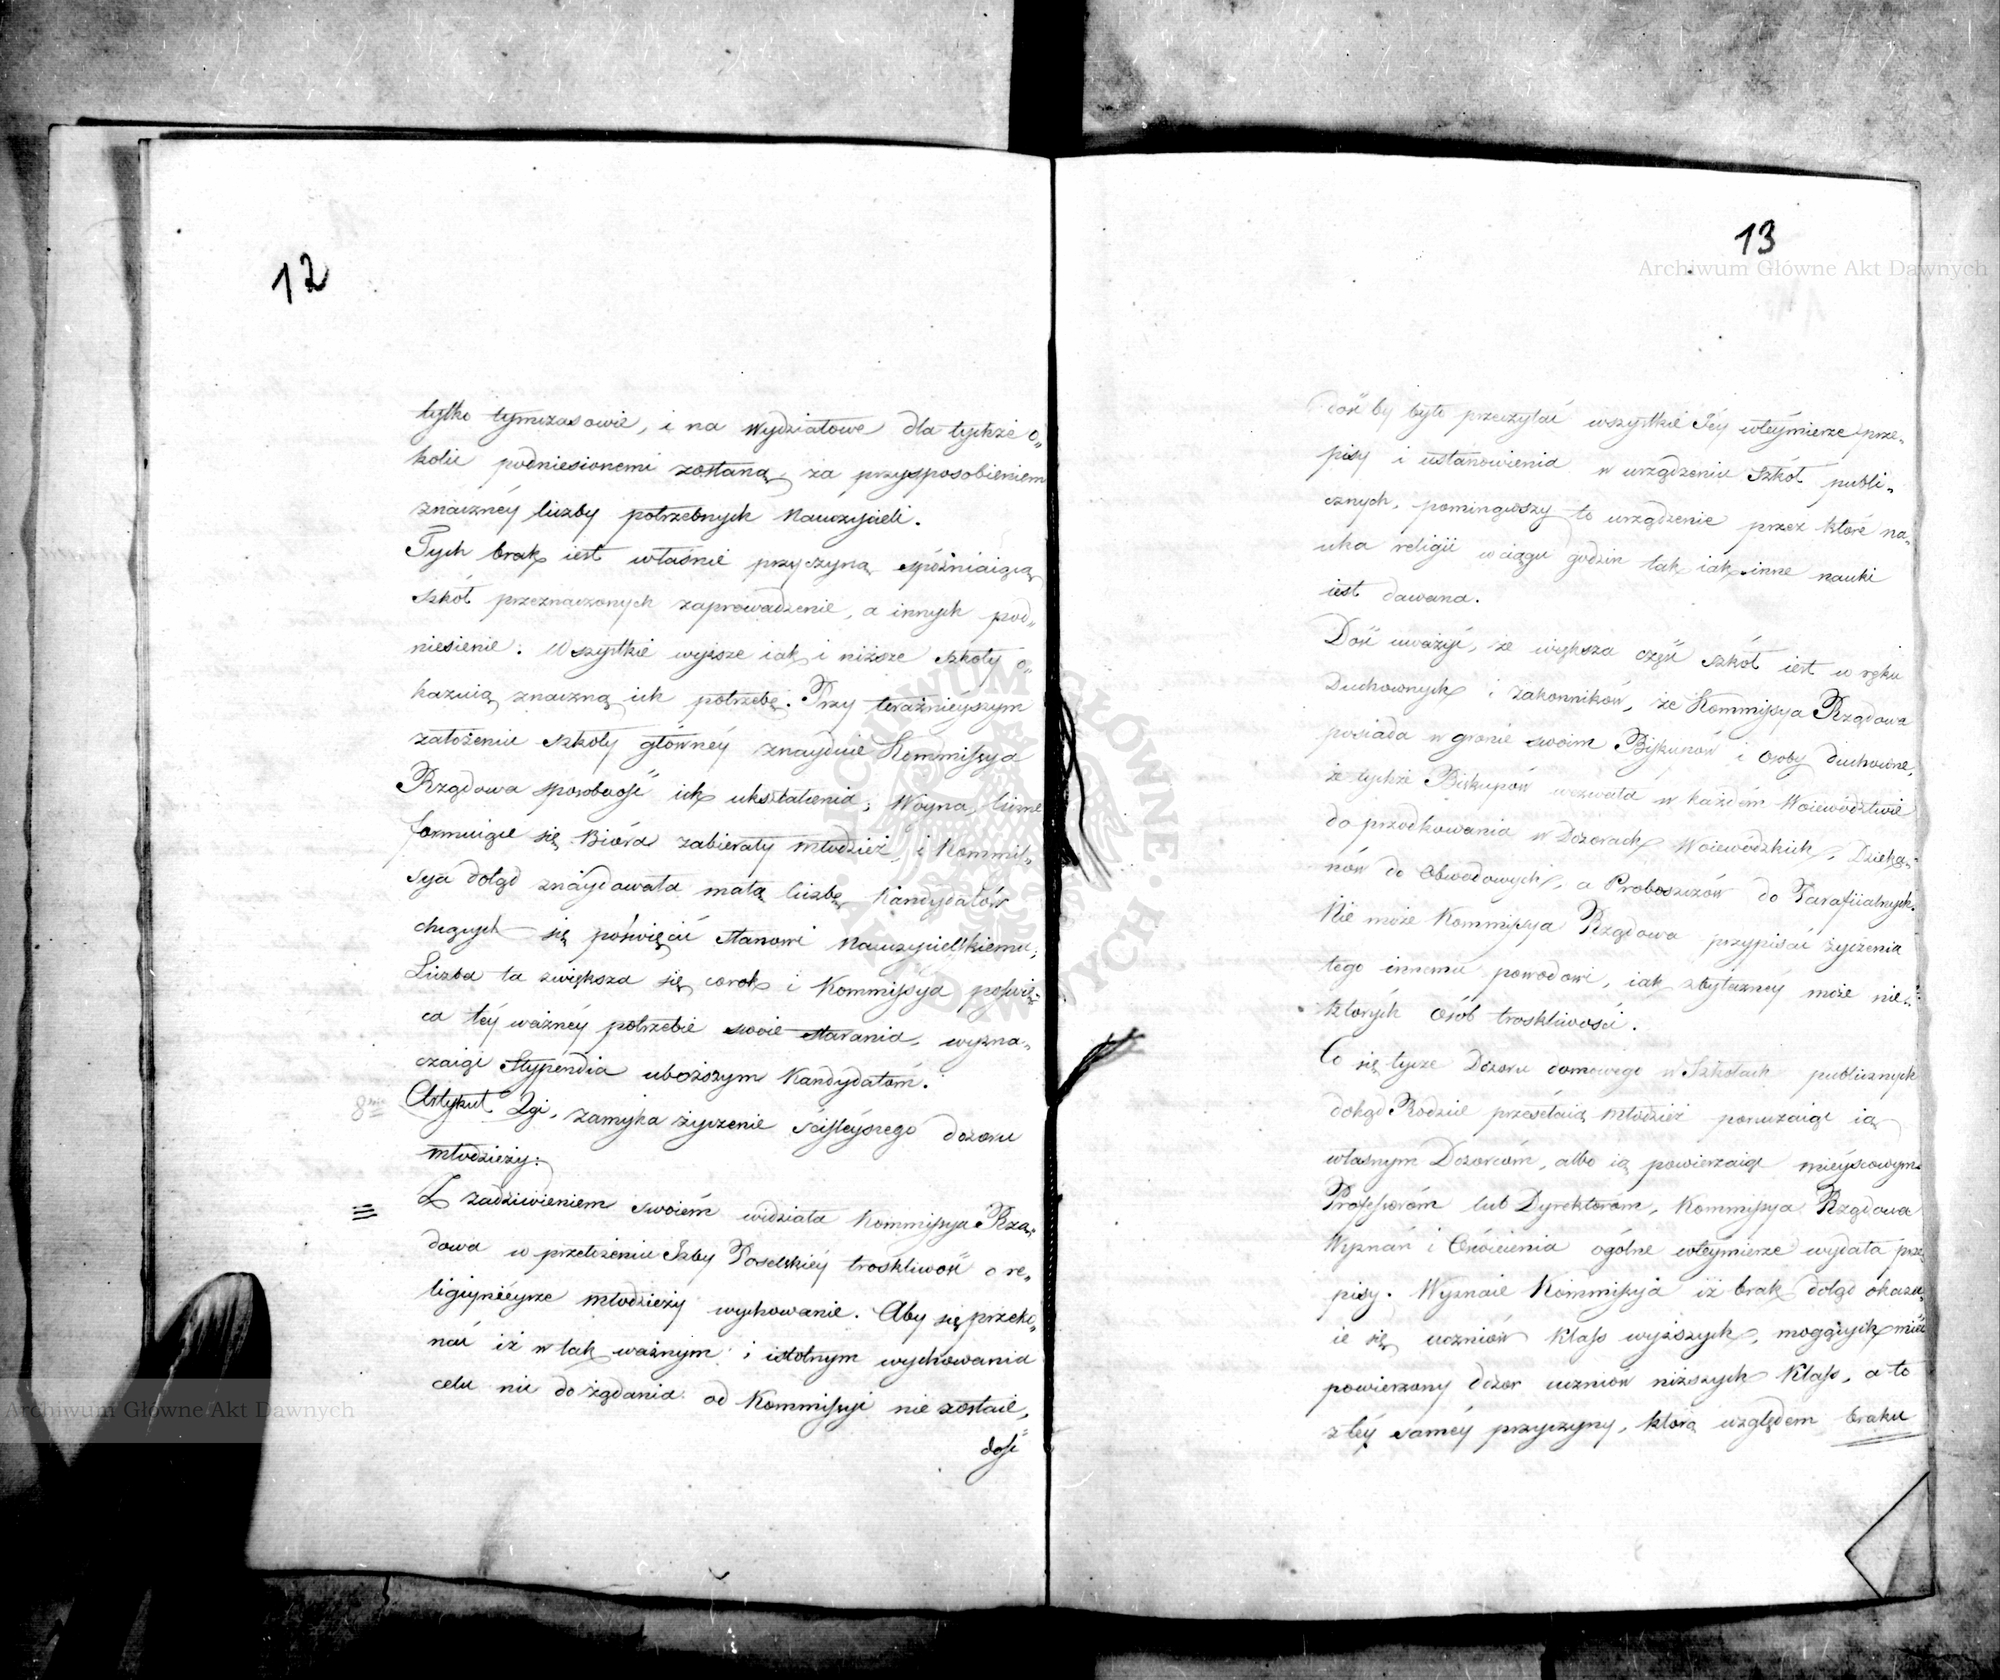 12
tylko tymczasowie, i na wydziałowe dla tychże o„
kolic podniesionemi zostaną, za przysposobieniem
znaczney liczby potrzebnych Nauczycieli.
Tych brak iest właśnie przyczyną spóźniaiącą
szkół przeznaczonych zaprowadzenie, a innych pod„
niesienie. Wszystkie wyższe iak i niższe szkoły o„
kazuią znaczną ich potrzebę. Przy teraźnieyszym
założeniu szkoły główney znayduie Kommissya
Rządowa sposobność ich ukształcenia; Woyna, liczne
formuiące się Bióra zabierały młodzież, i Kommis„
sya dotąd znaydowała małą liczbę Kandydatów
chcących się poświęcić stanowi Nauczycielskiemu;
Liczba ta zwiększa się corok i Kommissya poświę„
ca tey ważney potrzebie swoie starania, wyzna„
czaiąc Stypendia uboższym Kandydatom.
8me Artykuł 2gi, zamyka życzenie ściśleyszego dozoru
młodzieży.
Z zadziwieniem swoiém widziała Kommissya Rzą„
dowa w przełożeniu Izby Poselskiéy troskliwość o re„
ligiynieysze młodzieży wychowanie. Aby się przeko„
nać iż w tak ważnym i istotnym wychowania
celu nic do żądania od Kommissyi nie zostaie,
dość
13
dość by było przeczytać wszystkie Jéy wteymierze prze„
pisy i ustanowienia w urządzeniu Szkół publi„
cznych, pominąwszy to urządzenie przez które na„
uka religii w ciągu godzin tak iak inne nauki
iest dawana.
Dość uważyć, że większa część szkół iest w ręku
Duchownych i zakonników, że Kommissya Rządowa
posiada w gronie swoim Biskupów i osoby duchowne,
że tychże Biskupów wezwała w każdém Woiewództwie
do przodkowania w Dozorach Woiewódzkich, Dzieka„
nów do Obwodowych, a Proboszczów do Parafiialnych.
Nie może Kommissya Rządowa przypisać życzenia
tego innemu powodowi, iak zbyteczney może nie„
których osób troskliwości.
Co się tycze Dozoru domowego w Szkołach publicznych
dokąd Rodzice przesełaią młodzież poruczaiąc ią
własnym Dozorcóm, albo ią powierzaiąc mieyscowym
Professorom lub Dyrektorom, Kommissya Rządowa
Wyznań i Oświecenia ogólne wteymierze wydała prze„
pisy. Wyznaie Kommissya iż brak dotąd okazu„
ie się uczniów klass wyższych, mogących mieć
powierzony dozor uczniów niższych klass, a to
z tey samey przyczyny, którą względem braku